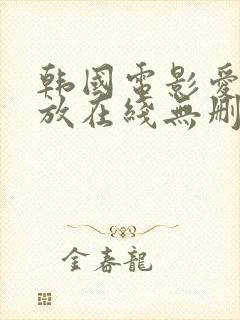 韩國電影愛
放在綫無删
金春龍